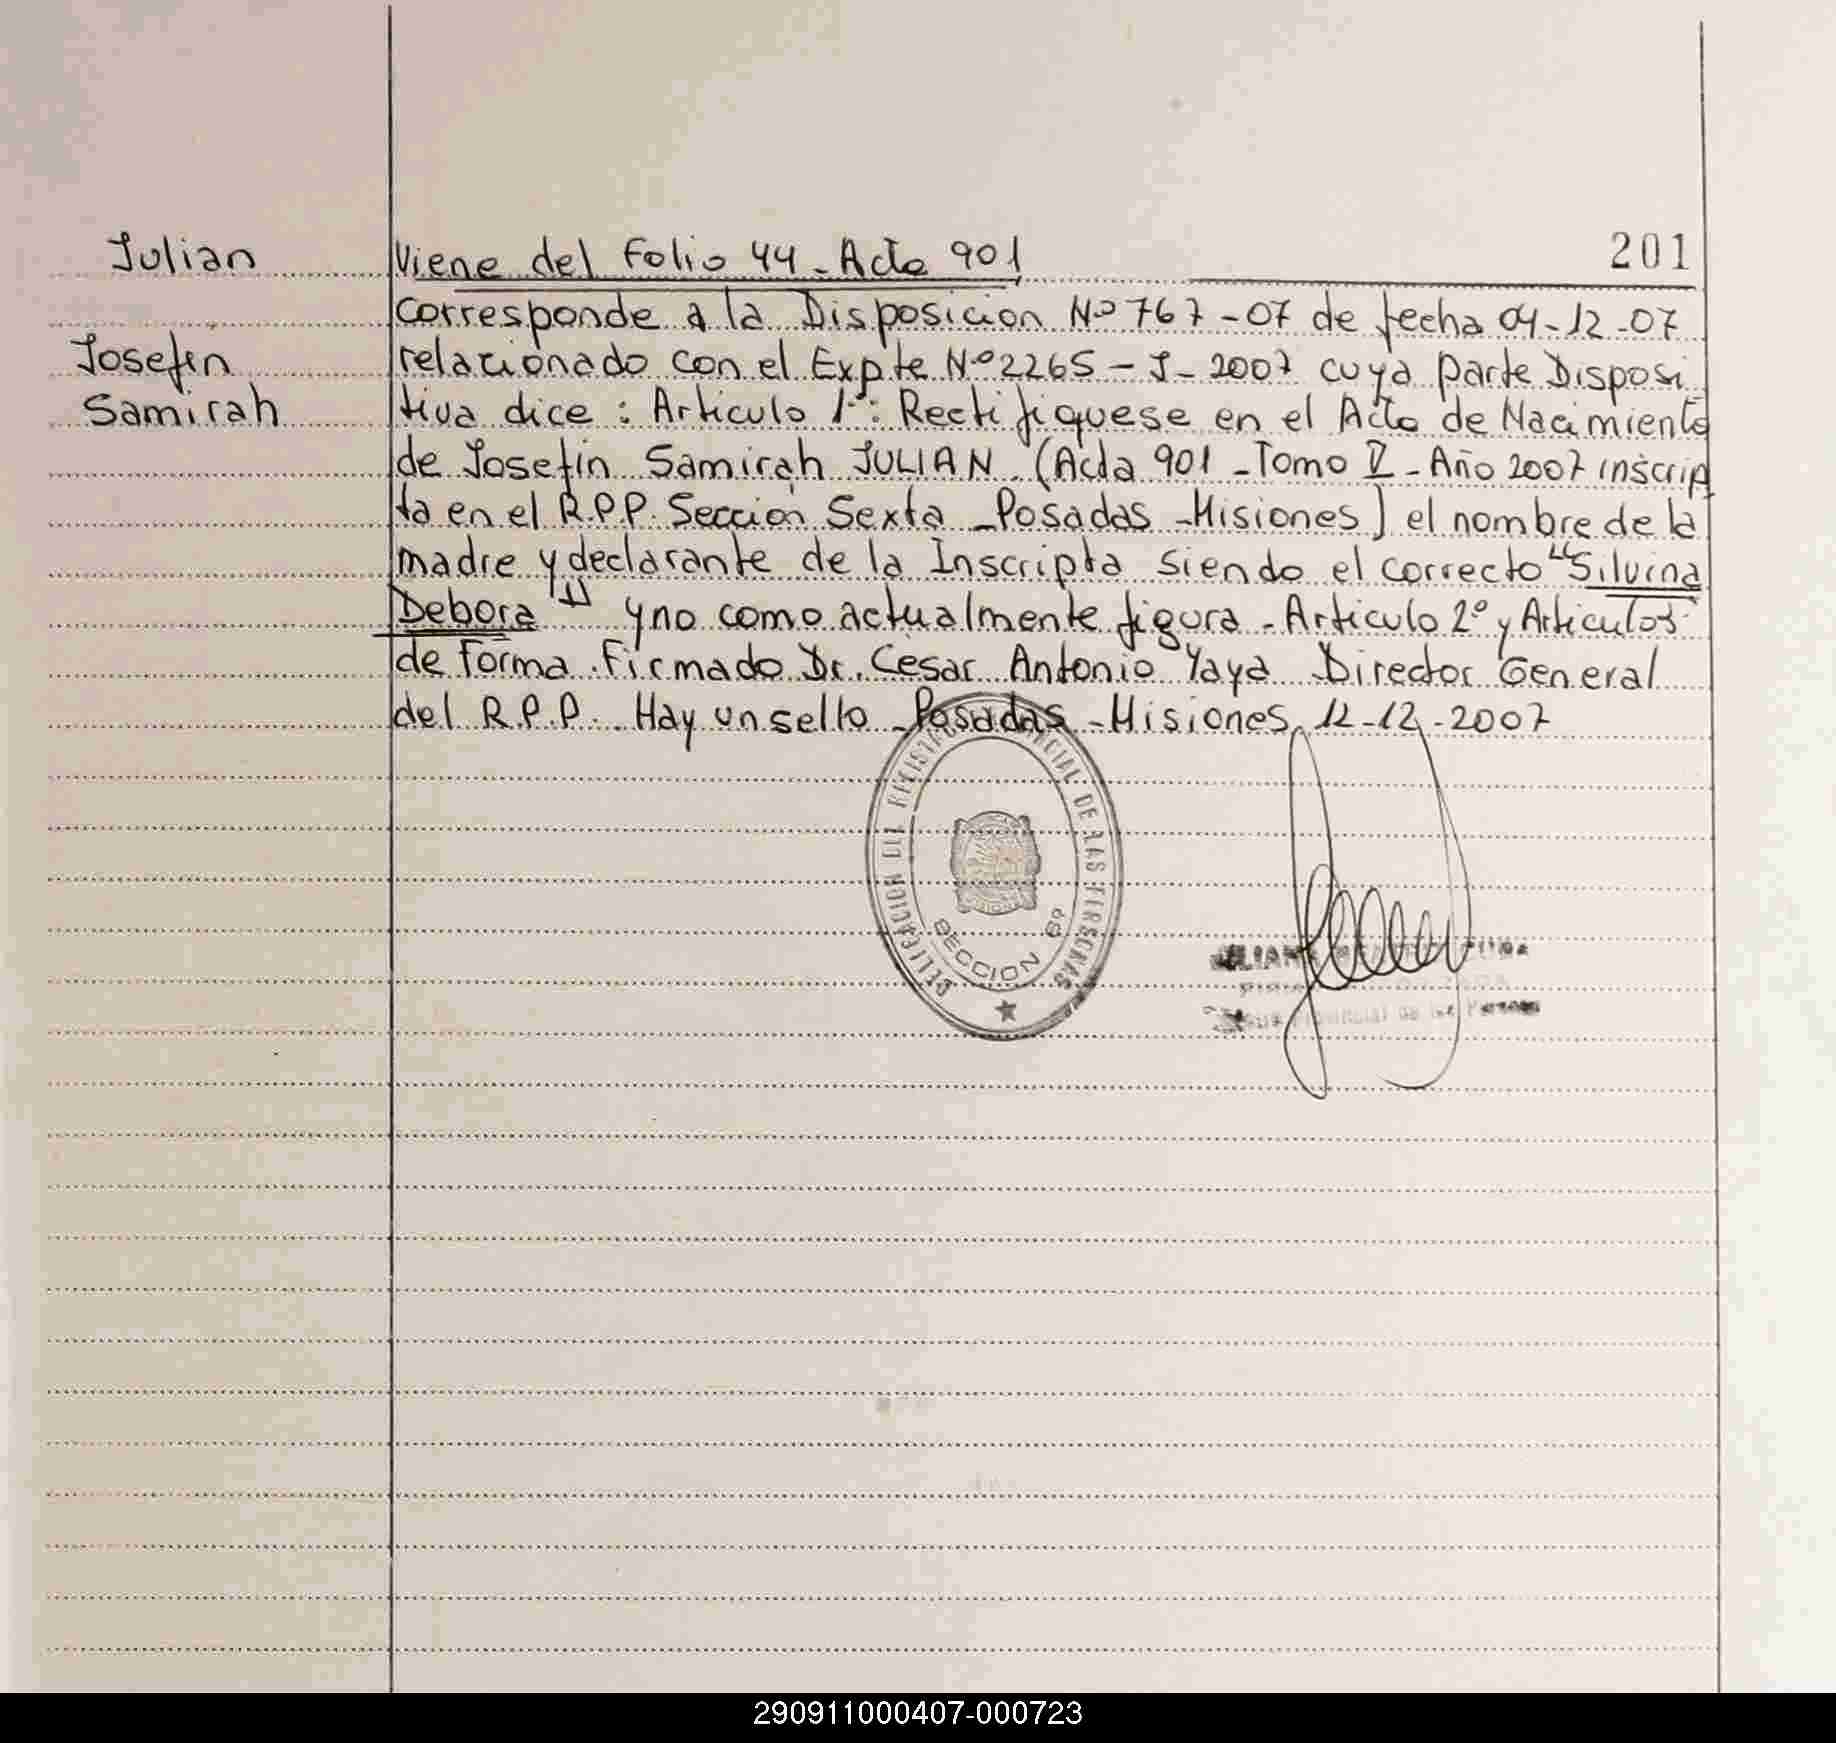 Julian
Viene del Folio 44 - Acta 901
201
corresponde a la Disposicion Nº 767-07 de fecha 04-12-07
Josefin
relacionado con el Expte Nº 2265 - J - 2007 cuya parte Disposi
Samirah
tiva dice : Articulo 1º: Rectifiquese en el Acta de Nacimiento
de Josefin Samirah JULIAN. (Acta 901 - Tomo V - Año 2007 inscrip
ta en el R.P.P. Sección Sexta - Posadas - Misiones) el nombre de la
madre y declarante de la Inscripta siendo el correcto "Silvina
Debora" y no como actualmente figura - Articulo 2º y Articulos
de forma. Firmado Dr. Cesar Antonio Yaya Director General
del R.P.P. Hay un sello - Posadas - Misiones, 12-12-2007
DELEGACION DEL REGISTRO PROVINCIAL DE LAS PERSONAS
SECCION 6º
Provincial de las Personas
290911000407-000723